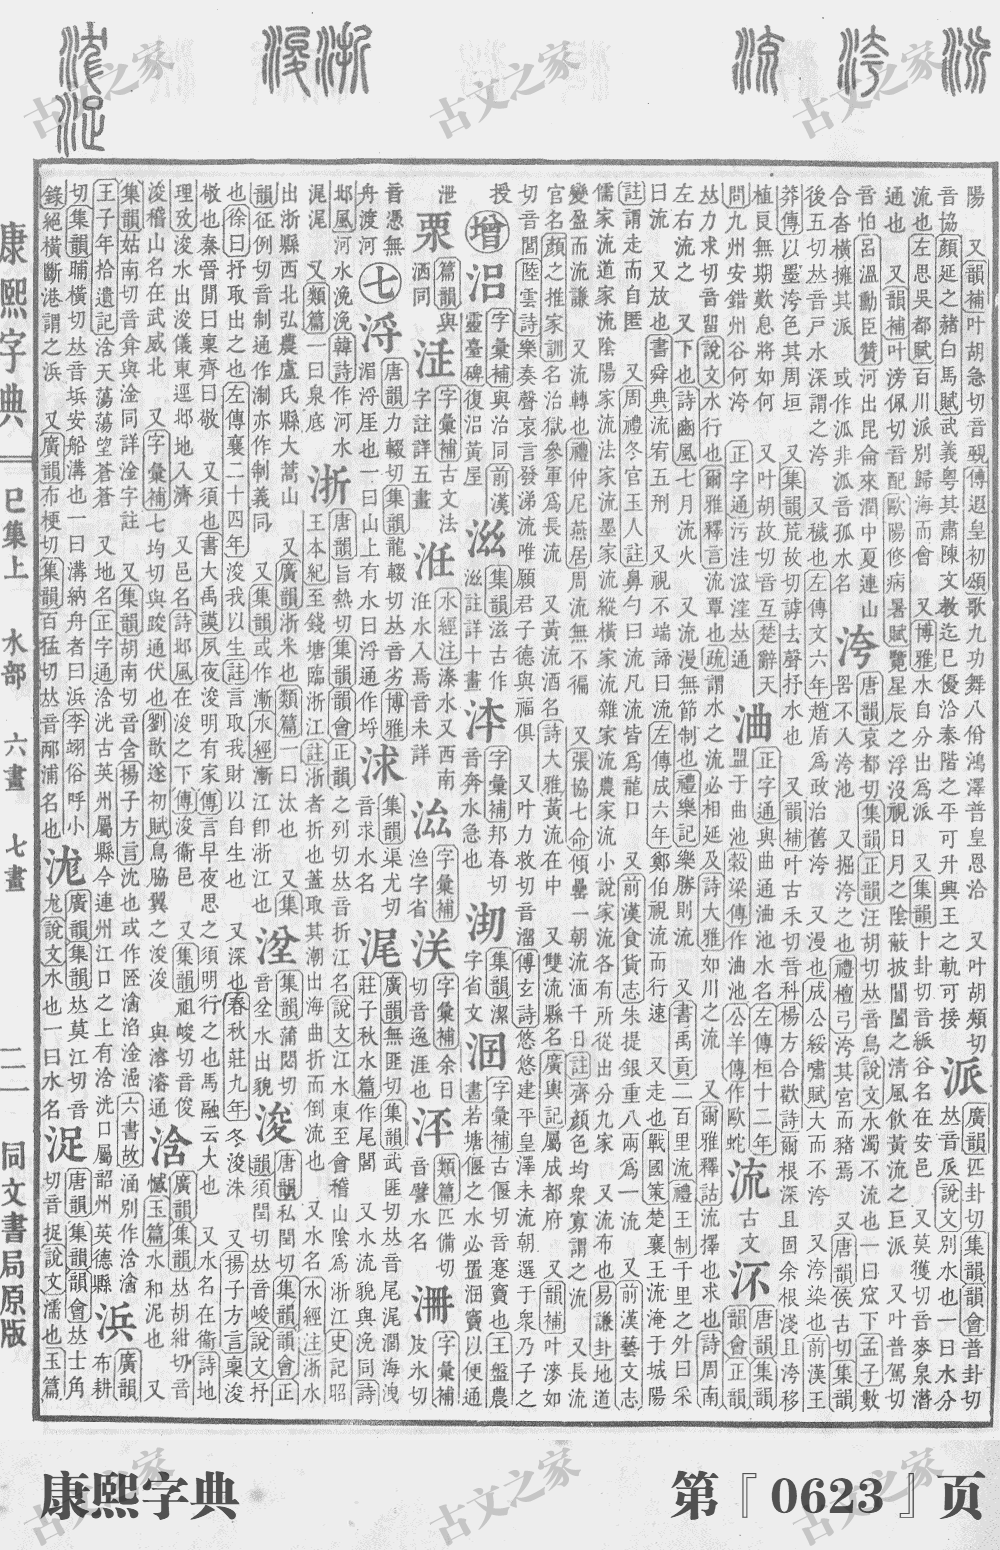 陽 又韻補叶胡急切音覡傳遐皇初頌歌九功舞八佾鴻澤普皇恩洽 又叶胡頰切
音協顏延之赭白馬賦武義粤其肅陳文教迄巳優洽泰階之平可升興王之軌可接
派 廣韻匹卦切集韻韻會普卦切𠀤音𠂢說文別水也一曰水分
流也左思吳都賦百川派別歸海而會 又博雅水自分出爲派 又集韻卜卦切音紙谷名在安邑 又莫獲切音麥泉潛
通也 又韻補叶滂佩切音配歐陽修病暑賦覽星辰之浮沒視日月之陰蔽披閶闔之清風飮黃流之巨派 又叶普駕切
音怕呂溫勳臣贊河出昆侖來潤中夏連山
合沓橫擁其派 或作泒非泒音孤水名
洿 唐韻哀都切集韻正韻汪胡切𠀤音烏說文水濁不流也一曰窊下孟子數
罟不入洿池 又掘洿之也禮檀弓洿其宮而豬焉 又唐韻侯古切集韻
後五切𠀤音戸水深謂之洿 又穢也左傳文六年趙盾爲政治舊洿 又漫也成公綏嘯賦大而不洿 又洿染也前漢王
莽傳以墨洿色其周垣 又集韻荒故切音互楚辭天
植良無期歎息將如何 又叶胡故切謼去聲抒水也 又韻補叶古禾切音科楊方合歡詩爾根深且固余根淺且洿移
問九州安錯州谷何洿 正字通污洼洂漥𠀤通
油 正字通與曲通油池水名左傳桓十二年
盟于曲池穀梁傳作油池公羊傳作歐蛇
流 古文㳅 唐韻集韻韻會正韻
𠀤力求切音留說文水行也爾雅釋言流覃也疏謂水之流必相延及詩大雅如川之流 又爾雅釋詁流擇也求也詩周南
左右流之 又下也詩豳風七月流火 又流漫無節制也禮樂記樂勝則流 又書禹貢二百里流禮王制千里之外曰采
曰流 又放也書舜典流宥五刑 又視不端諦曰流左傳成六年鄭伯視流而行速 又走也戰國策楚襄王流淹于城陽
註謂走而自匿 又周禮冬官玉人註鼻勺曰流凡流皆爲龍口 又前漢食貨志朱提銀重八兩爲一流 又前漢藝文志
儒家流道家流陰陽家流法家流墨家流縱橫家流雜家流農家流小說家流各有所從出分九家 又流布也易謙卦地道
變盈而流謙 又流轉也禮仲尼燕居周流無不徧 又張協七命傾罍一朝流湎千日註齊顏色均衆寡謂之流 又長流
官名顏之推家訓名治獄參軍爲長流 又黃流酒名詩大雅黃流在中 又雙流縣名廣輿記屬成都府 又韻補叶漻如
切音閭陸雲詩樂奏聲哀言發涕流唯願君子德與福俱 又叶力救切音溜傅玄詩悠悠建平皇澤未流朝選于衆乃子之
授
增
沼 字彙補與治同前漢
靈臺碑復沼黃屋
滋 集韻滋古作
滋註詳十畫
泍 字彙補邦春切
音奔水急也
沏 集韻潔
字省文
泂 字彙補古偃切音蹇竇也王盤農
書若塘偃之水必置泂竇以便通
泄
栗 篇韻與
洒同
泟 字彙補古文法
字註詳五畫
泩 水經注溱水又西南
泩水入焉音未詳
泴 字彙補
渔字省
浂 字彙補余日
切音逸涯也
泙 類篇匹備切
音譬水名
泇 字彙補
皮氷切
音憑無
舟渡河
七
浖 唐韻力輟切集韻龍輟切𠀤音劣博雅
湄浖厓也一曰山上有水曰浖通作埒
浗 集韻渠尤切
音求水名
浘 廣韻無匪切集韻武匪切𠀤音尾浘濶海洩
莊子秋水篇作尾閭 又水流貌與浼同詩
邶風河水浼浼韓詩作河水
浘浘 又類篇一曰泉底
浙 唐韻旨熱切集韻韻會正韻之列切𠀤音折江名說文江水東至會稽山陰爲浙江史記昭
王本紀至錢塘臨浙江註浙者折也蓋取其潮出海曲折而倒流也 又水名水經注浙水
出浙縣西北弘農盧氏縣大蒿山 又廣韻浙米也類篇一曰汰也 又集
韻征例切音制通作淛亦作制義同 又集韻或作漸水經漸江卽浙江也
坌 集韻蒲悶切
音坌水出貌
浚 唐韻私閏切集韻韻會正
韻須閏切𠀤音峻說文抒
也徐曰抒取出之也左傳襄二十四年浚我以生註言取我財以自生也 又深也春秋莊九年冬浚洙 又揚子方言稟浚
敬也秦晉閒曰稟齊曰敬 又須也書大禹謨夙夜浚明有家傳言早夜思之須明行之也馬融云大也 又水名在衞詩地
理攷浚水出浚儀東逕邶地入濟 又邑名詩邶風在浚之下傳浚衞邑 又集韻祖峻切音俊
浚稽山名在武威北 又字彙補七均切與踆通伏也劉歆遂初賦鳥脇翼之浚浚 與濬濬通
浛 廣韻集韻𠀤胡紺切音
憾玉篇水和泥也 又
集韻姑南切音弇與淦同詳淦字註 又集韻胡南切音含揚子方言沈也或作𠣘㵅淊淦涵六書故涵別作浛㵅
王子年拾遺記浛天蕩蕩望蒼蒼 又地名正字通浛洸古英州屬縣今連州江口之上有浛洸口屬韶州英德縣
浜 廣韻
布耕
切集韻晡橫切𠀤音垬安船溝也一曰溝納舟者曰浜李翊俗呼小
錄絕橫斷港謂之浜 又廣韻布梗切集韻百猛切𠀤音㔙浦名也
浝 廣韻集韻𠀤莫江切音
尨說文水也一曰水名
浞 唐韻集韻韻會𠀤士角
切音捉說文濡也玉篇
康熙字典 巳集上 水部 六畫 七畫 一一 同文書局原版
古文之家
古文之家
古文之家
康熙字典 第『0623』页